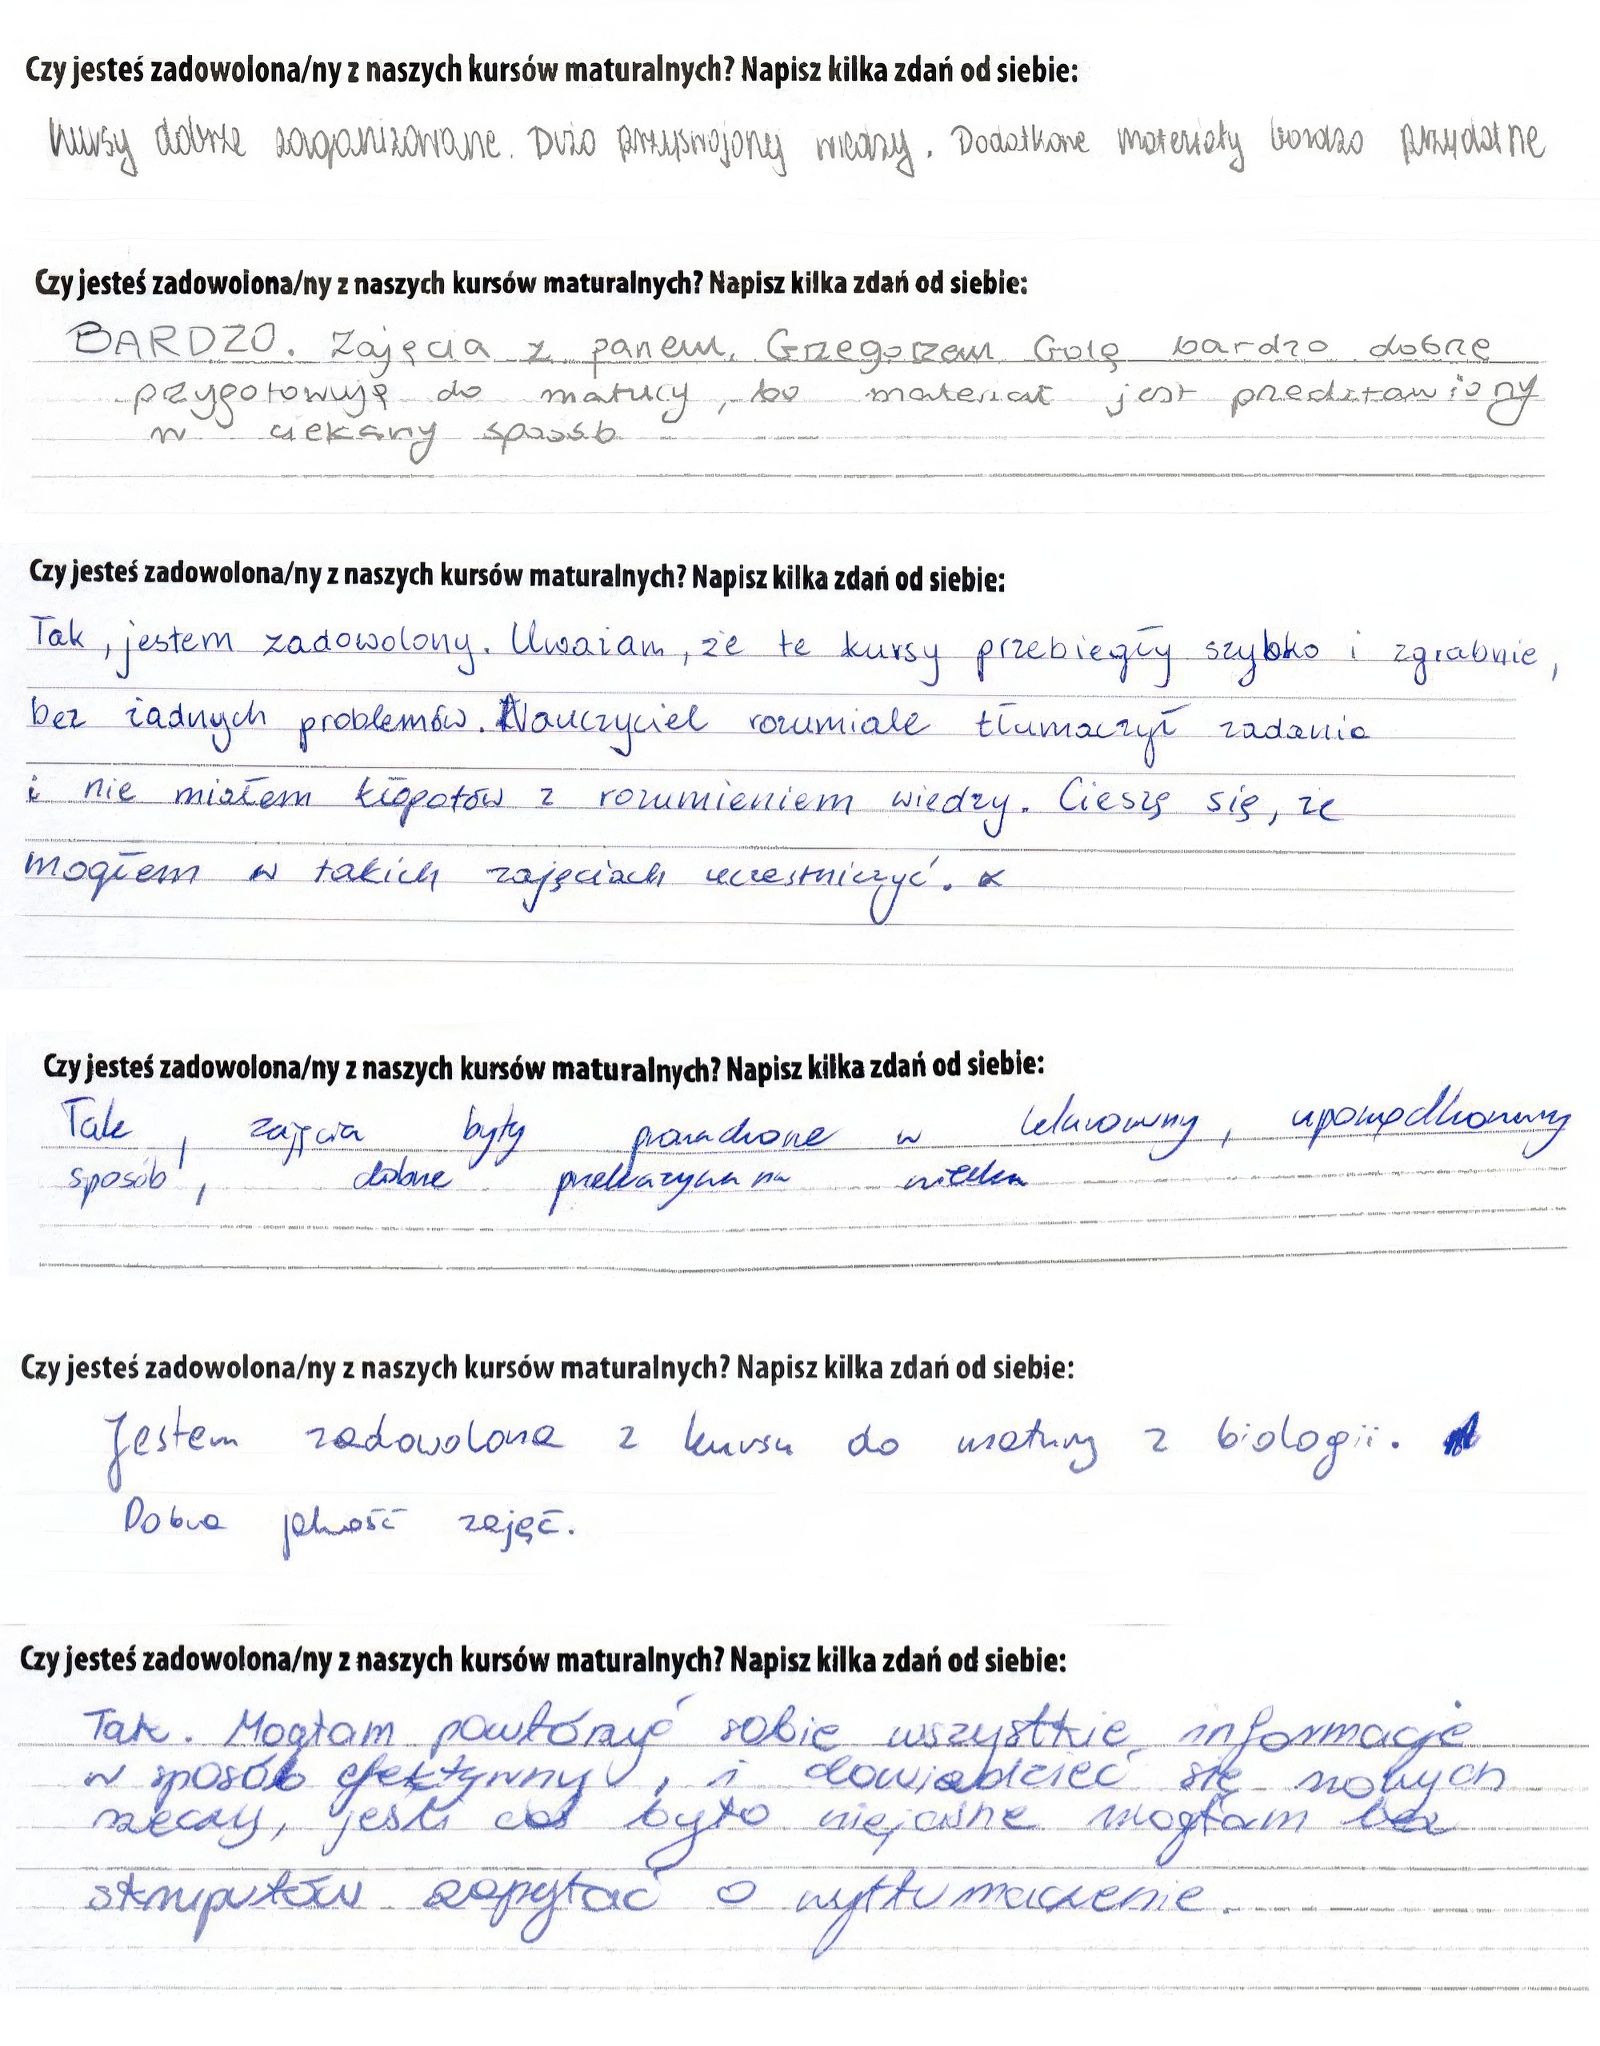 Czy jesteś zadowolona/ny z naszych kursów maturalnych? Napisz kilka zdań od siebie:
Kursy dobrze zorganizowane. Dużo przyswojonej wiedzy. Dodatkowe materiały bardzo przydatne
Czy jesteś zadowolona/ny z naszych kursów maturalnych? Napisz kilka zdań od siebie:
BARDZO. Zajęcia z panem Grzegorzem Golą bardzo dobrze
przygotowują do matury, bo materiał jest przedstawiony
w ciekawy sposób
Czy jesteś zadowolona/ny z naszych kursów maturalnych? Napisz kilka zdań od siebie:
Tak, jestem zadowolony. Uważam, że te kursy przebiegły szybko i zgrabnie,
bez żadnych problemów. Nauczyciel rozumiale tłumaczył zadania
i nie miałem kłopotów z rozumieniem wiedzy. Cieszę się, że
mogłem w takich zajęciach uczestniczyć.
Czy jesteś zadowolona/ny z naszych kursów maturalnych? Napisz kilka zdań od siebie:
Tak, zajęcia były prowadzone w, uporządkowany
sposób, dobrze przekazywana wiedza
Czy jesteś zadowolona/ny z naszych kursów maturalnych? Napisz kilka zdań od siebie:
Jestem zadowolona z kursu do matury z biologii.
Dobra jakość zajęć.
Czy jesteś zadowolona/ny z naszych kursów maturalnych? Napisz kilka zdań od siebie:
Tak. Mogłam powtórzyć sobie wszystkie informacje
w sposób efektywny, i dowiedzieć się nowych
rzeczy, jeśli coś było niejasne mogłam bez
skrupułów zapytać o wytłumaczenie.